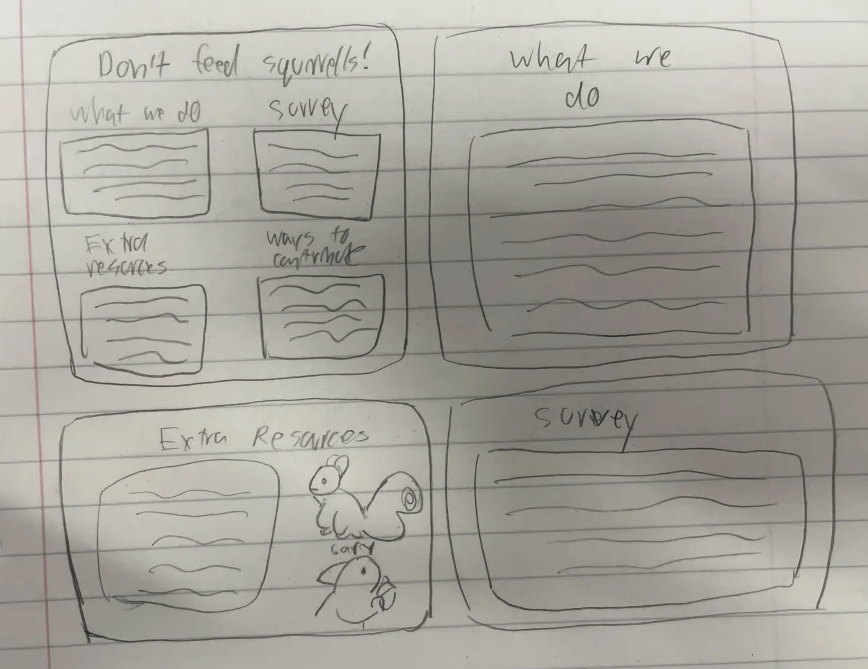 Don't feed squrrells!
what we do
survey
Extra
resources
ways to
contribute
what we
do
Extra Resources
Gary
survey